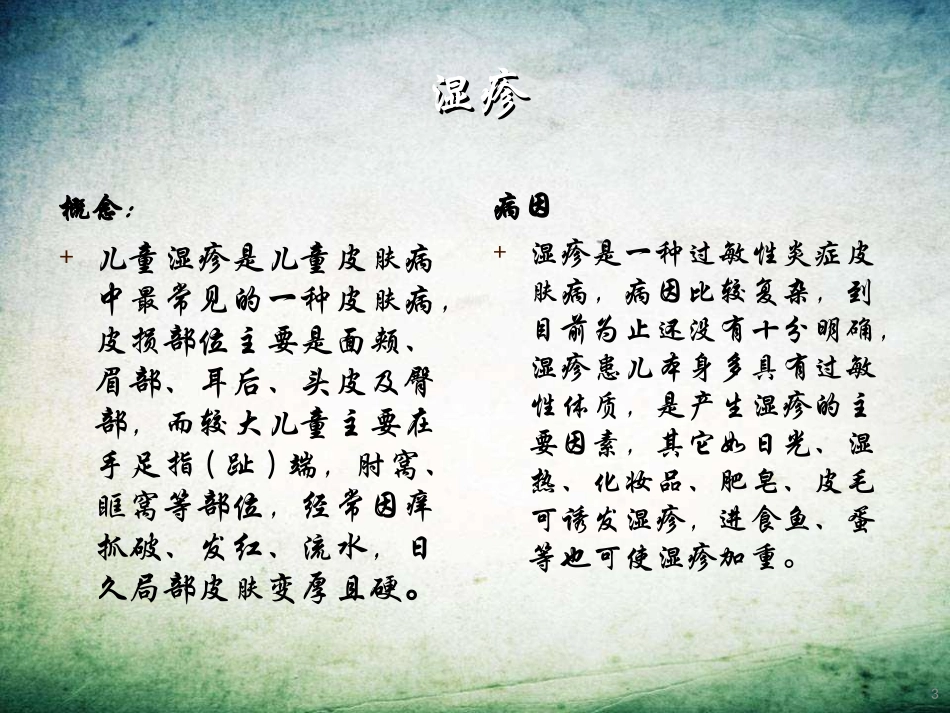 湿疹
概念：
+ 儿童湿疹是儿童皮肤病
中最常见的一种皮肤病，
皮损部位主要是面颊、
眉部、耳后、头皮及臀
部，而较大儿童主要在
手足指（趾）端，肘窝、
眶窝等部位，经常因痒
抓破、发红、流水，日
久局部皮肤变厚且硬。
病因
+ 湿疹是一种过敏性炎症皮
肤病，病因比较复杂，到
目前为止还没有十分明确，
湿疹患儿本身多具有过敏
性体质，是产生湿疹的主
要因素，其它如日光、湿
热、化妆品、肥皂、皮毛
可诱发湿疹，进食鱼、蛋
等也可使湿疹加重。
3